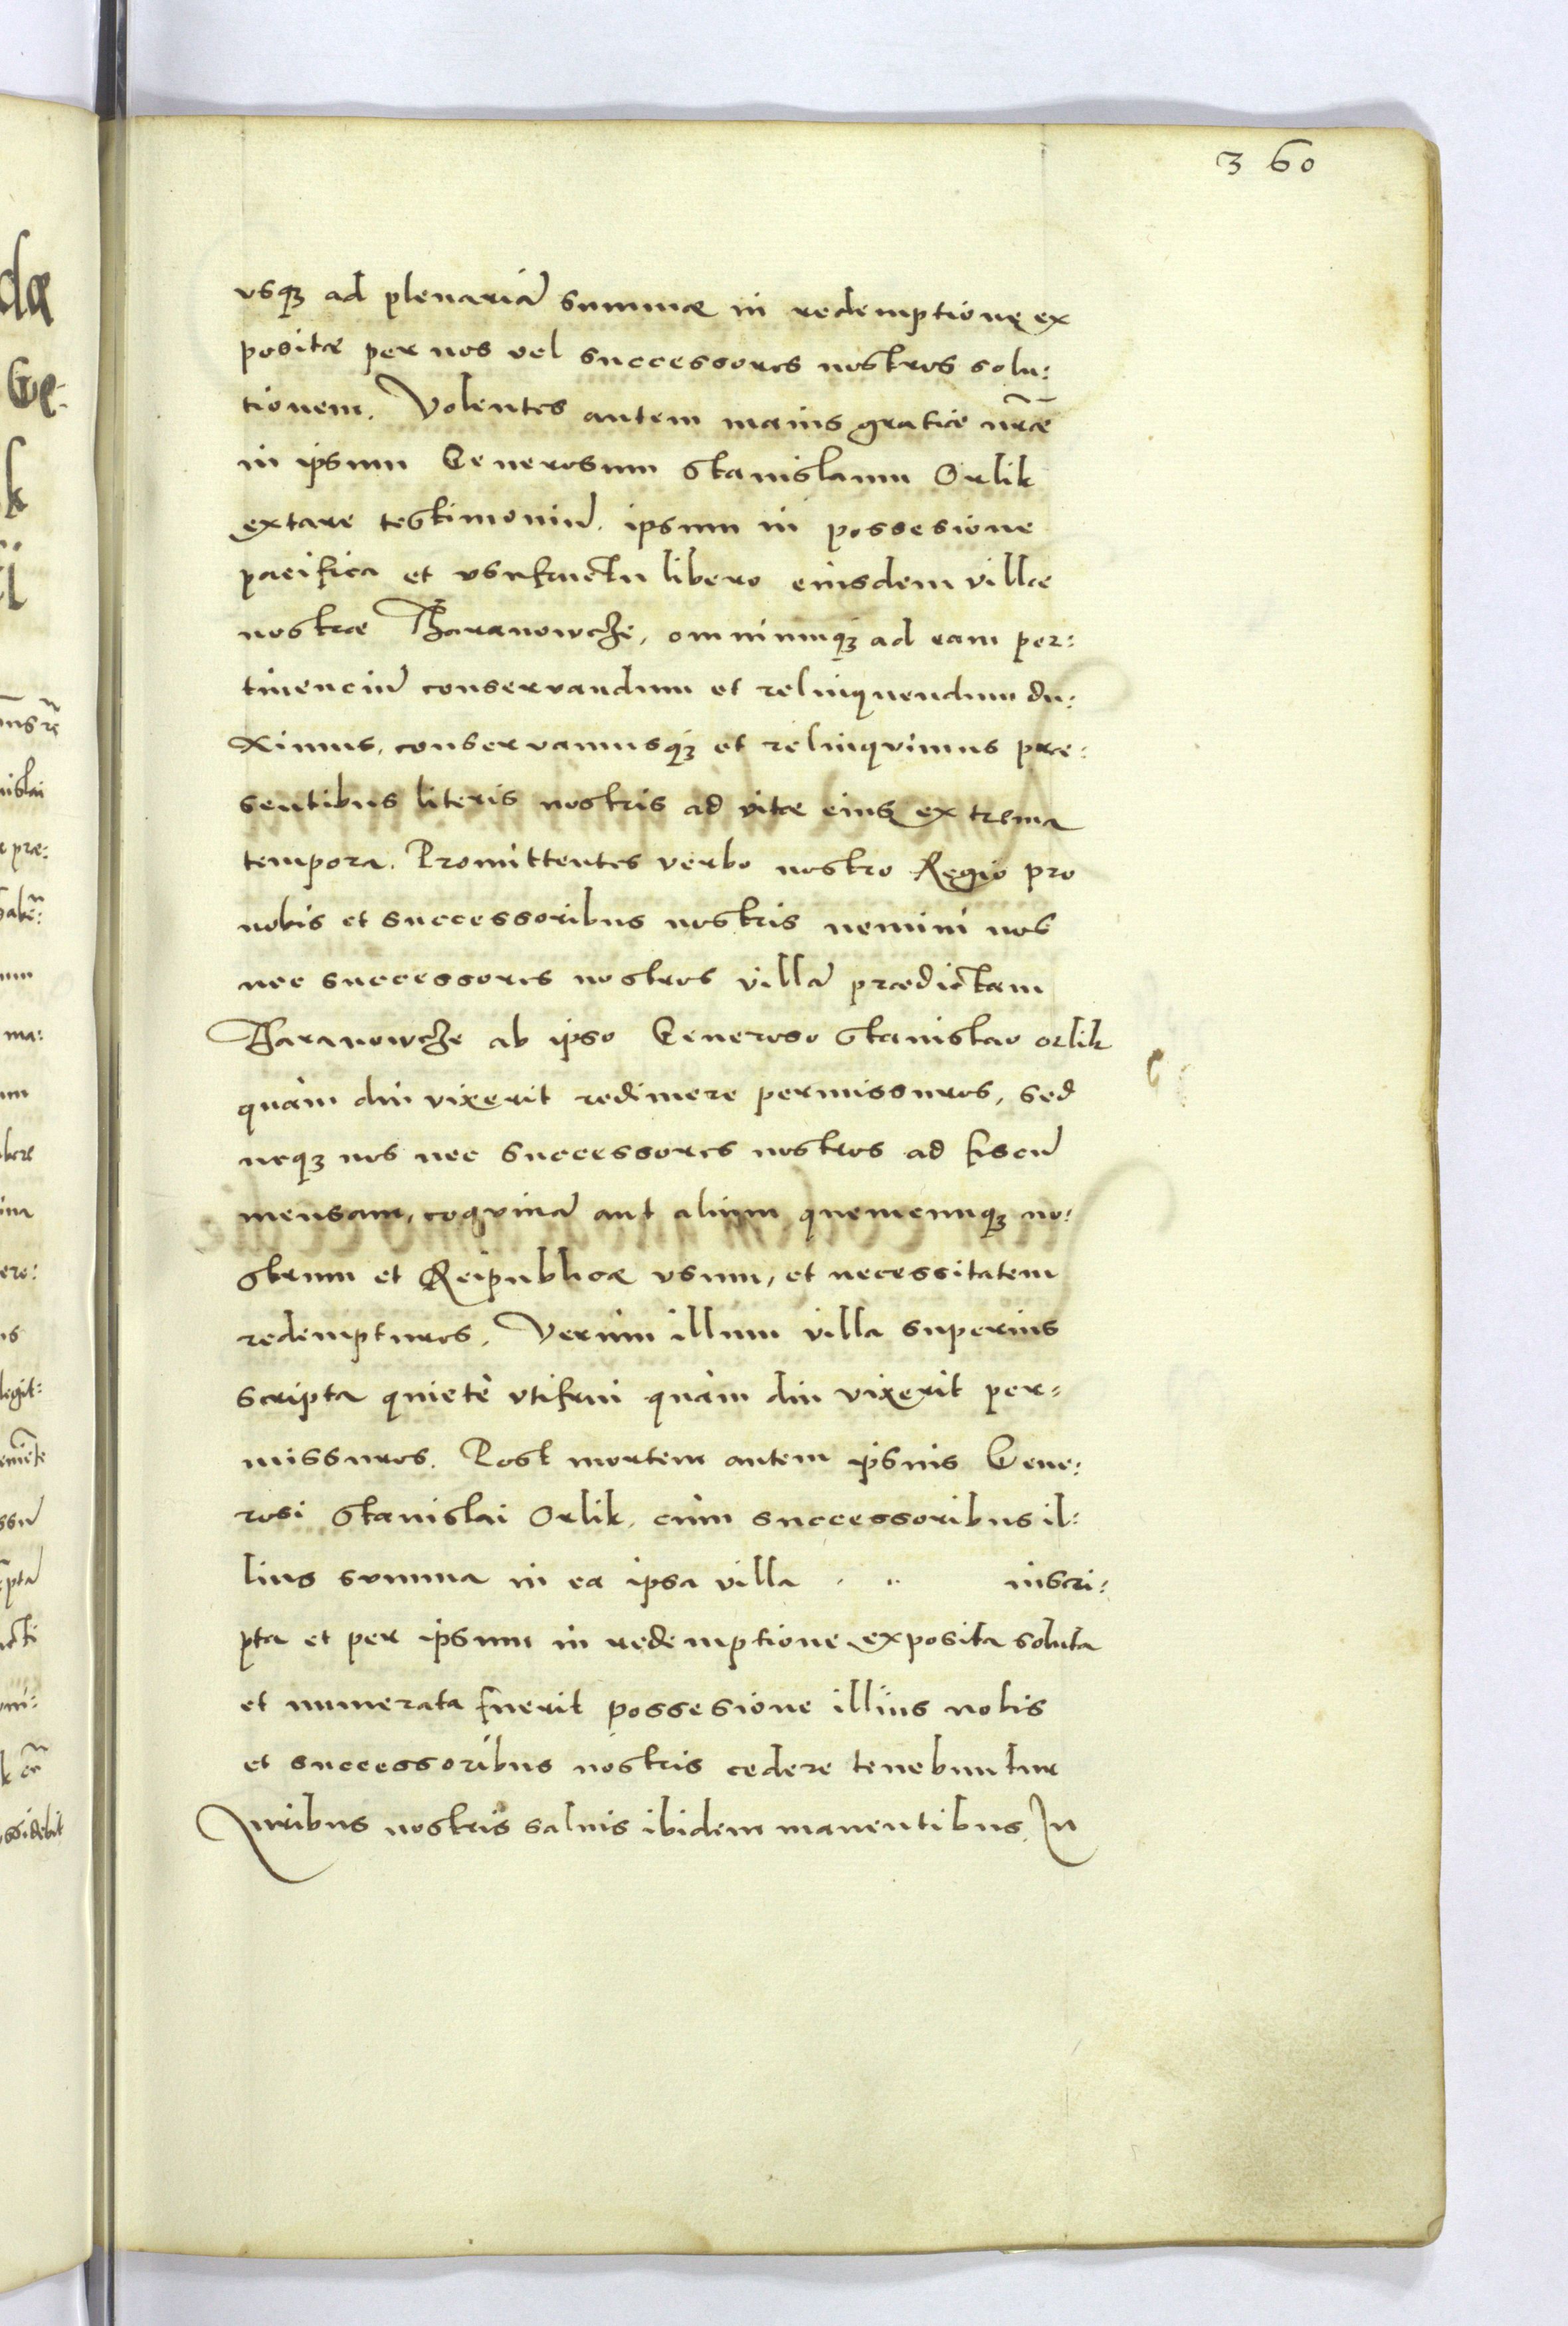 360
vsq₃ ad plenariā summæ in redemptione ex
positæ per nos vel successores nostros solu:
tionem. Volentes autem maius gratiæ nr̄æ
in ipsum Generosum Stanislaum Orlik
extare testimoniū. ipsum in possesione
pacifica et vsufructu libero eiusdem villæ
nostræ Tharanowcze, omniumq₃ ad eam per:
tinenciū conservandum et relinquendum du:
ximus, conservamusq₃ et relinqvimus præ:
sentibus literis nostris ad vitæ eius extrema
tempora. Promittentes verbo nostro Regio pro
nobis et successoribus nostris nemini nos
nec successores nostros villā prædictam
Tharanowcze ab ipso Generoso Stanislao orlik
quàm diu vixerit redimere permissuros, sed
neq₃ nos nec successores nostros ad fiscū
mensam, coqvinā aut alium quemcunq₃ no:
strum et Reipublicæ vsum, et necessitatem
redempturos. Verùm illum villa superius
scripta quietè vtifrui quàm diu vixerit per-
missuros. Post mortem autem ipsius Gene:
rosi Stanislai Orlik, cùm successoribus il:
lius summa in ea ipsa villa inscri:
pta et per ipsum in redemptione exposita soluta
et numerata fuerit possesione illius nobis
et successoribus nostris cedere tenebuntur
Iuribus nostris saluis ibidem manentibus. In